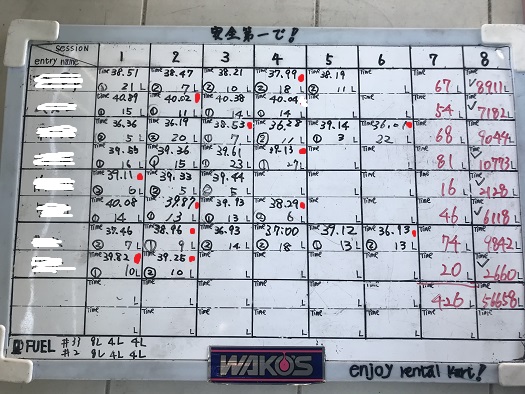 安全第一で!
SESSION 1 2 3 4 5 6 7 8
entry name
Time 38.51 Time 38.47 Time 38.21 Time 37.99 Time 38.19 Time Time Time
② 21 L ② 7 L ② 10 L ② 18 L ② 11 L L 67 L ✓8911 L
Time 40.89 Time 40.02 Time 40.38 Time 40.04 Time Time Time Time
① 15 L ① 11 L ① 14 L ① 14 L L L 54 L ✓7182 L
Time 36.36 Time 36.19 Time 38.53 Time 36.28 Time 39.14 Time 36.01 Time Time
② 5 L ② 20 L ① 7 L ② 11 L ① 3 L 22 L 68 L 9044 L
Time 39.53 Time 39.36 Time 39.61 Time 39.13 Time Time Time Time
① 16 L ① 15 L ① 23 L ① 27 L L L 81 L ✓10773 L
Time 39.11 Time 39.33 Time 39.44 Time Time Time Time Time
② 6 L ② 5 L ② 5 L L L L 16 L ✓2128 L
Time 40.08 Time 39.87 Time 39.93 Time 38.29 Time Time Time Time
① 14 L ① 13 L ① 13 L ② 6 L L L 46 L ✓6118 L
Time 37.46 Time 38.96 Time 36.93 Time 37.00 Time 37.12 Time 36.93 Time Time
② 7 L ① 9 L ② 14 L ② 18 L ② 13 L ② 13 L 74 L 9842 L
Time 39.82 Time 39.25 Time Time Time Time Time Time
① 10 L ② 10 L L L L L 20 L ✓2660 L
Time Time Time Time Time Time Time Time
L L L L L L 426 L 56658 L
Time Time Time Time Time Time Time Time
L L L L L L L L
FUEL #33 8L 4L 4L
#2 8L 4L 4L
WAKO'S
enjoy rental kart!